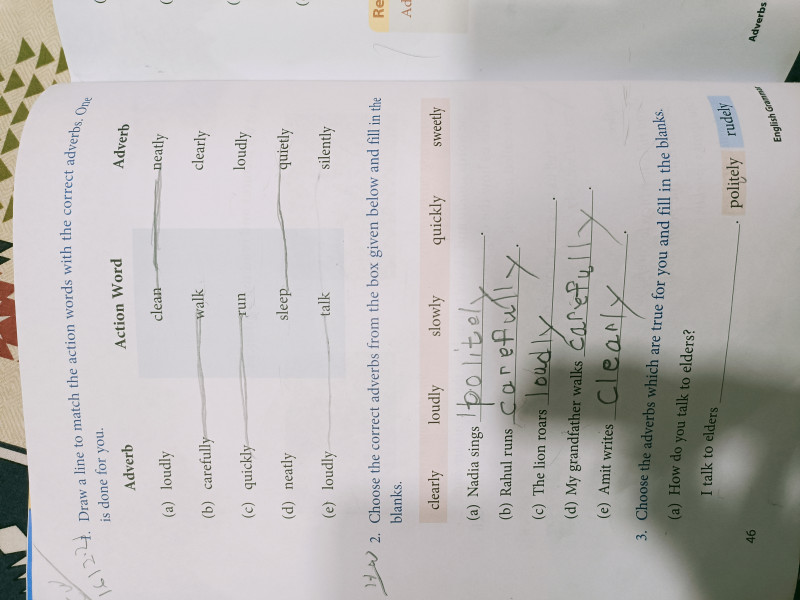 1. Draw a line to match the action words with the correct adverbs. One
is done for you.
Adverb Action Word Adverb
(a) loudly clean neatly
(b) carefully walk clearly
(c) quickly run loudly
(d) neatly sleep quietly
(e) loudly talk silently
H.W 2. Choose the correct adverbs from the box given below and fill in the
blanks.
clearly loudly slowly quickly sweetly
(a) Nadia sings politely.
(b) Rahul runs carefully.
(c) The lion roars loudly.
(d) My grandfather walks carefully.
(e) Amit writes Clearly.
3. Choose the adverbs which are true for you and fill in the blanks.
(a) How do you talk to elders?
I talk to elders . politely rudely
46
English Grammar
Adverbs
Re
Ad